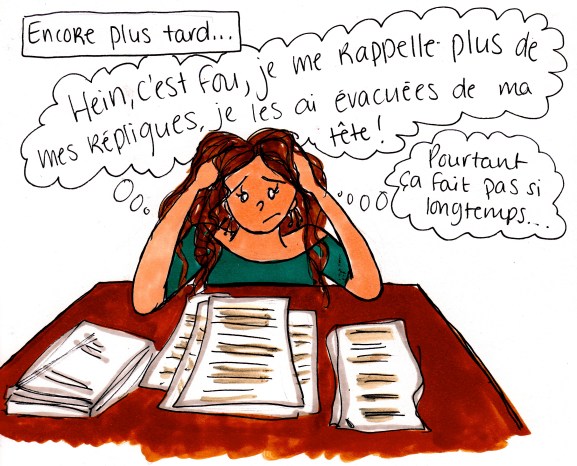 Encore plus tard...
Hein, c'est fou, je me rappelle plus de
mes répliques, je les ai évacuées de ma
tête!
Pourtant
ça fait pas si
longtemps...